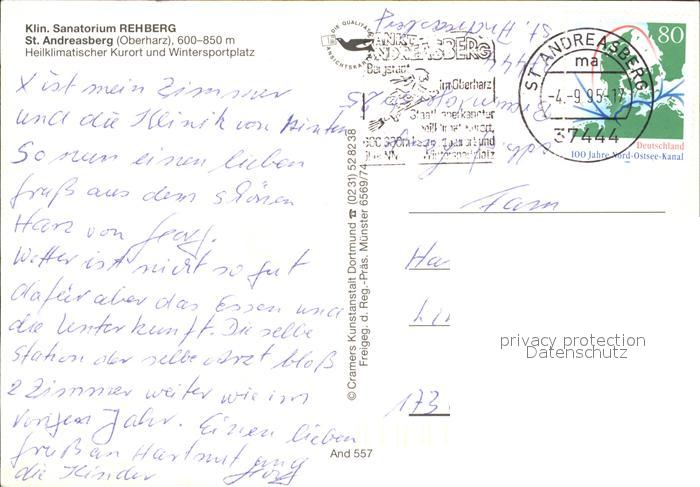 Klin. Sanatorium REHBERG
St. Andreasberg (Oberharz), 600–850 m
Heilklimatischer Kurort und Wintersportplatz
X ist mein Zimmer
und die Klinik von hinten
So nun einen lieben
gruß aus dem schönen
Harz von Georg.
Wetter ist nicht so gut
dafür aber das Essen und
die Unterkunft. Die selbe
Station der selbe Arzt bloß
2 Zimmer weiter wie im
vorigen Jahr. Einen lieben
gruß an Hartmut und
die Kinder Georg
DIE QUALITÄTS
ANSICHTSKARTE
© Cramers Kunstanstalt Dortmund ☎ (0231) 528238
Freigeg. d. Reg.-Präs. Münster 6569/74
And 557
ANDREASBERG
Bergstadt
im Oberharz
Staatl. anerkannter
Wintersportplatz
ST ANDREASBERG
ma
-4.-9.95-17
37444
80
Deutschland
100 Jahre Nord-Ostsee-Kanal
St. Andreasberg
37444
Fam
Ha
Li
173
privacy protection
Datenschutz